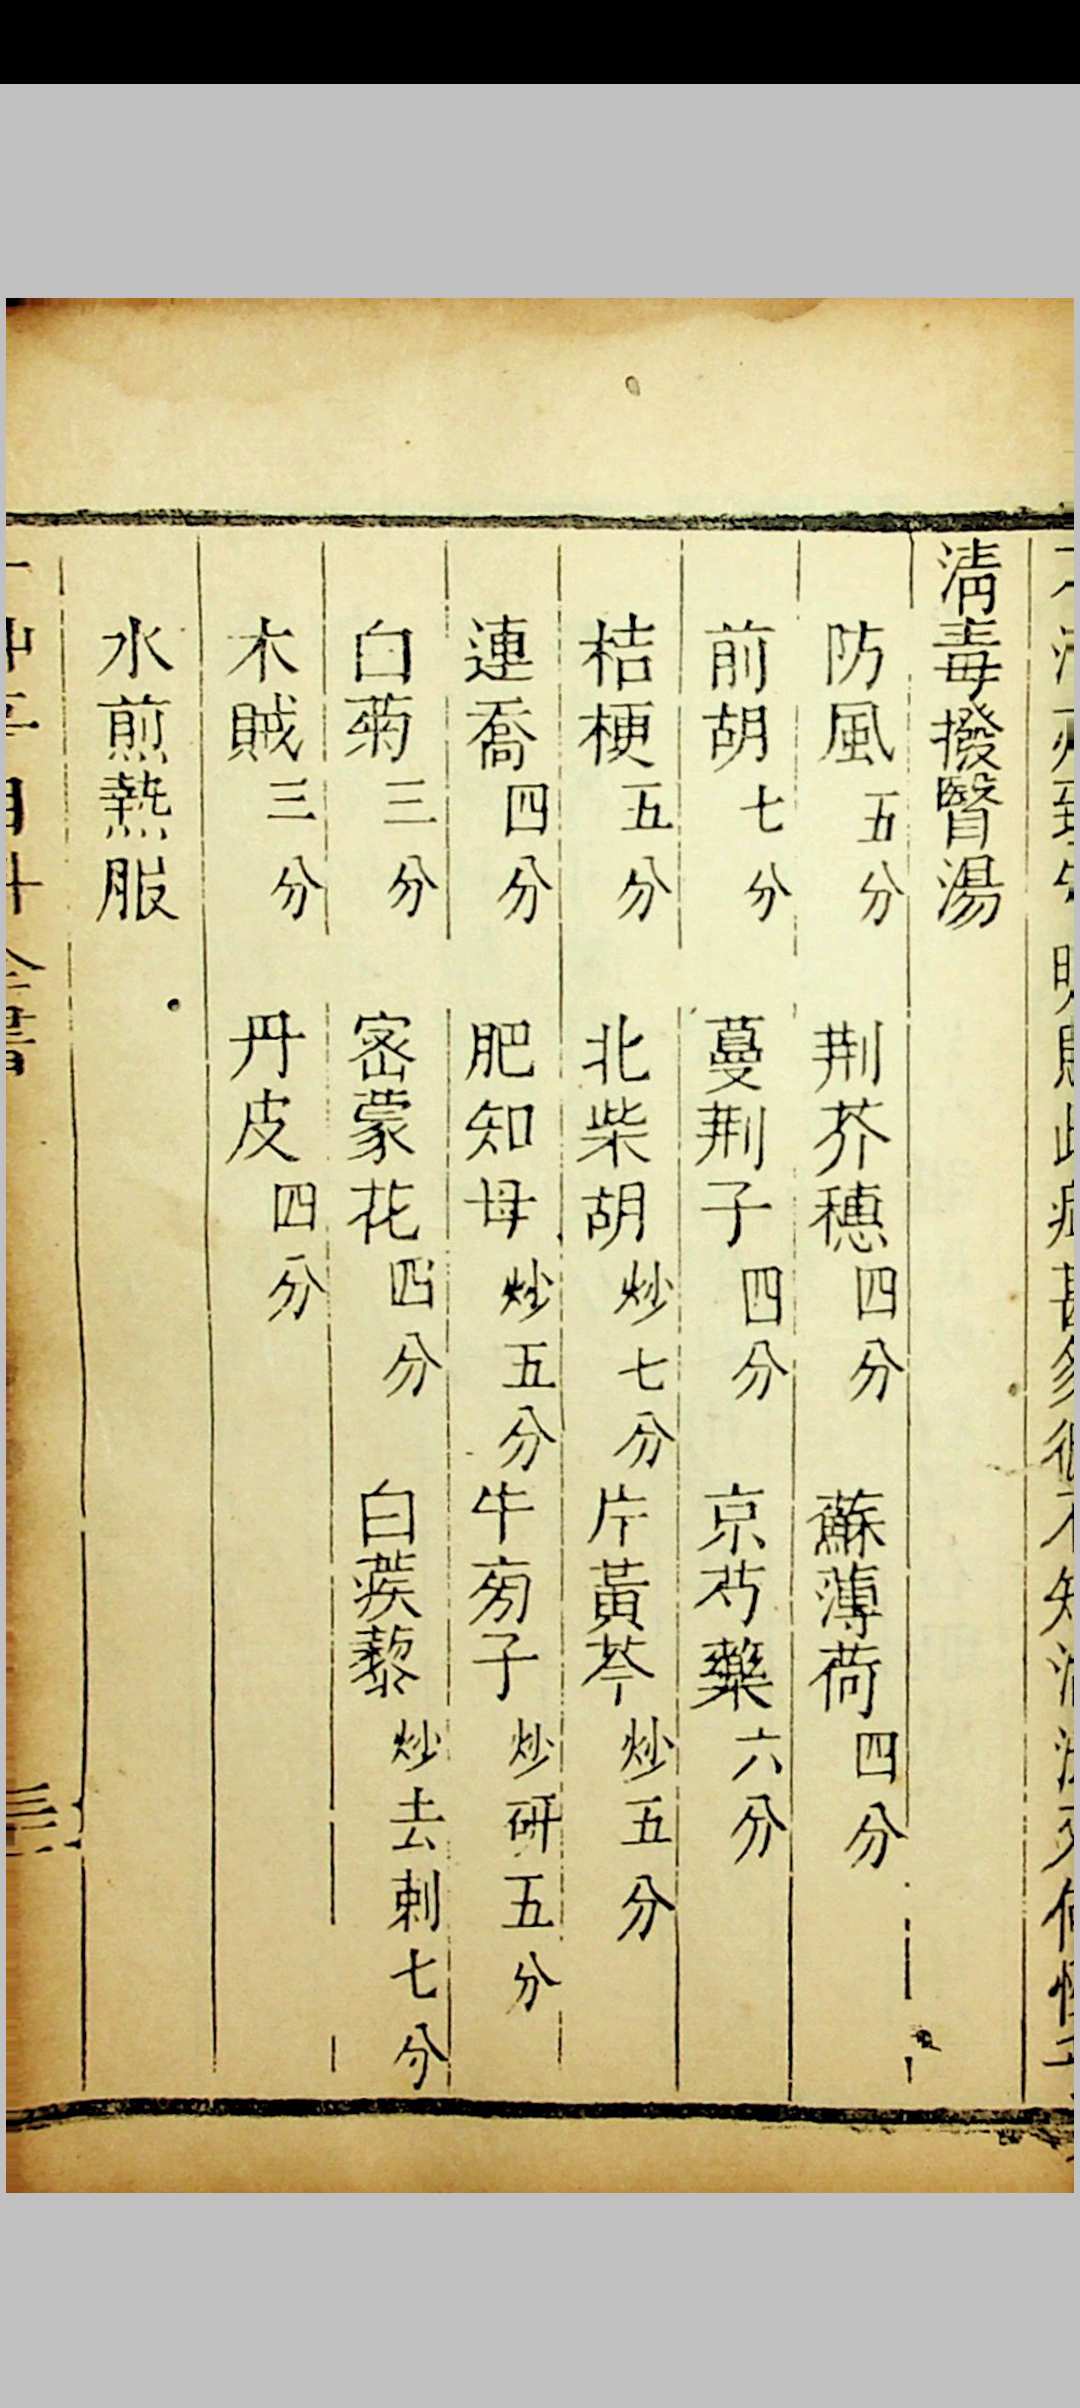 清毒撥瞖湯
防風五分 荆芥穗四分 蘇薄荷四分
前胡七分 蔓荆子四分 京芍藥六分
桔梗五分 北柴胡炒七分 片黃芩炒五分
連喬四分 肥知母炒五分 牛旁子炒研五分
白菊三分 宻蒙花四分 白蒺藜炒去刺七分
木賊三分 丹皮四分
水煎熱服